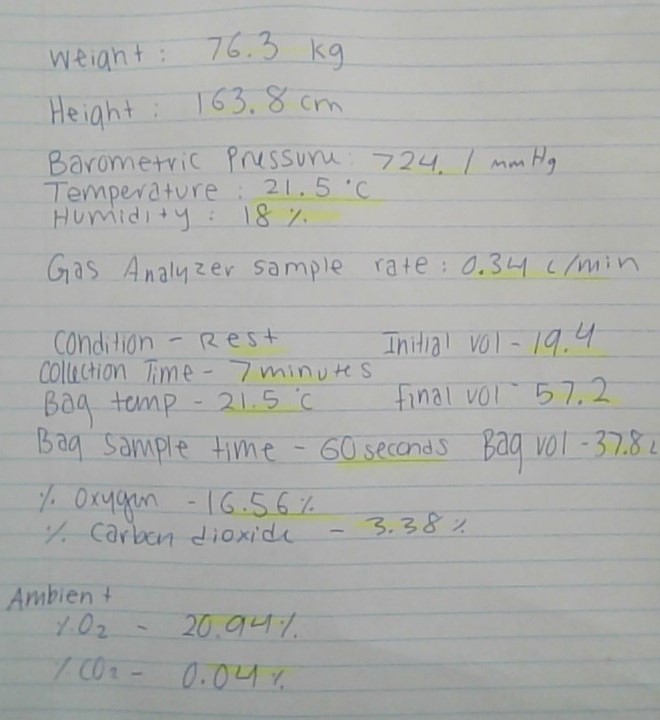 Weight : 76.3 kg
Height : 163.8 cm
Barometric Pressure: 724.1 mmHg
Temperature : 21.5 °C
Humidity : 18 %
Gas Analyzer sample rate : 0.34 L/min
Condition - Rest Initial vol - 19.4
Collection Time - 7 minutes
Bag temp - 21.5 °C final vol - 57.2
Bag Sample time - 60 seconds Bag vol - 37.8 L
% Oxygen - 16.56 %
% Carbon dioxide - 3.38 %
Ambient
% O2 - 20.94 %
% CO2 - 0.04 %